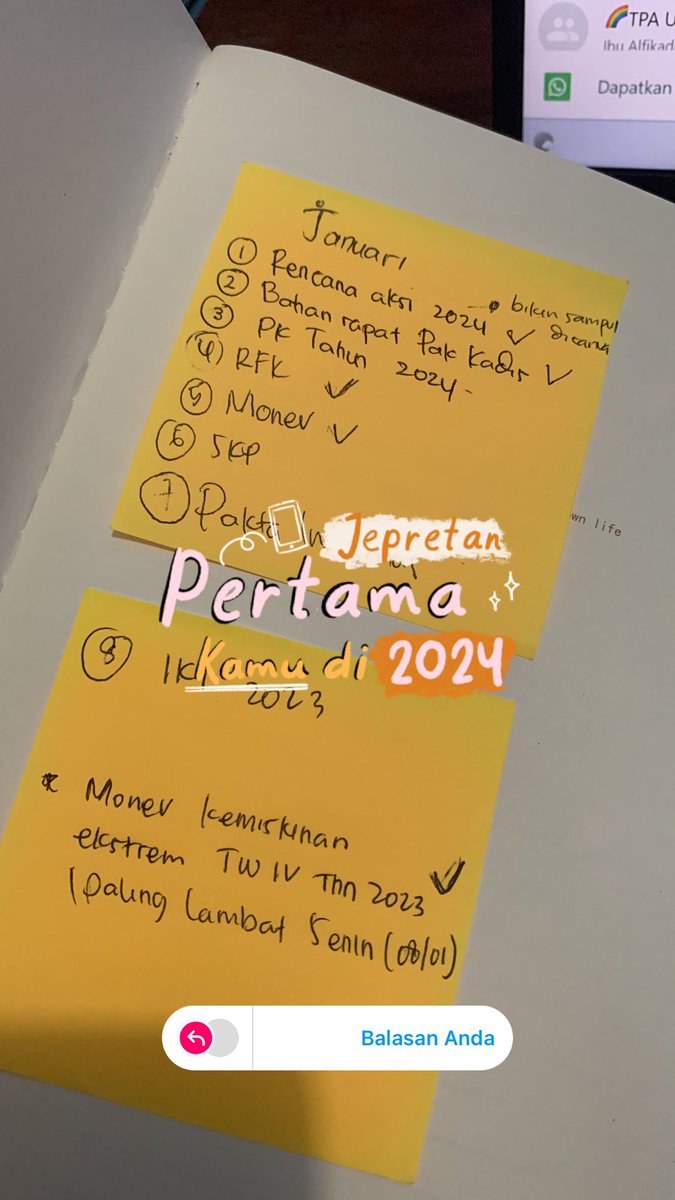 🌈TPA U
Ibu Alfikad
Dapatkan
Januari
① Rencana aksi 2024 • bikin sampul
② Bahan rapat Pak Kadir ✓
③ PK Tahun 2024
④ RFK ✓
⑤ Monev ✓
⑥ SKP
⑦ Pakta In
wn life
Jepretan
Pertama
Kamu di 2024
⑧ 2023
* Monev kemiskinan
ekstrem TW IV Thn 2023 ✓
(paling lambat Senin (08/01)
Balasan Anda